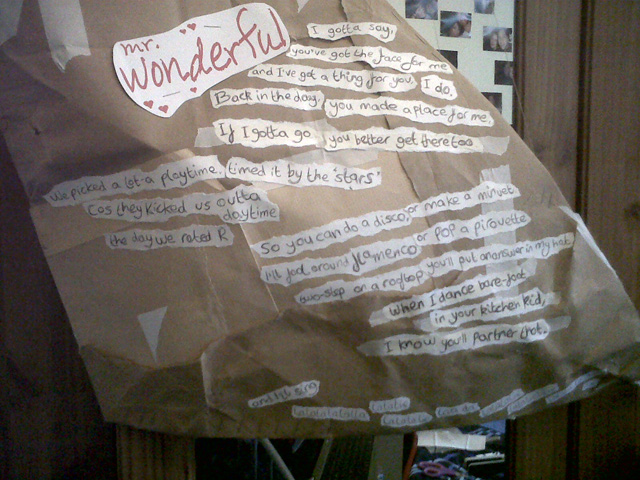 mr.
wonderful
I gotta say,
you've got the face for me
and I've got a thing for you, I do.
Back in the day, you made a place for me,
If I gotta go you better get there too
we picked a lot-a playtime, timed it by the 'stars'
Cos they kicked us outta
daytime
the day we rated R
So you can do a disco, or make a minuet
I'll fool around flamenco or POP a pirouette
two-step on a rooftop you'll put an answer in my hat
when I dance bare-foot
in your kitchen kid,
I know you'll partner that.
and I'll sing
lalalalalalala lalala
lalalala